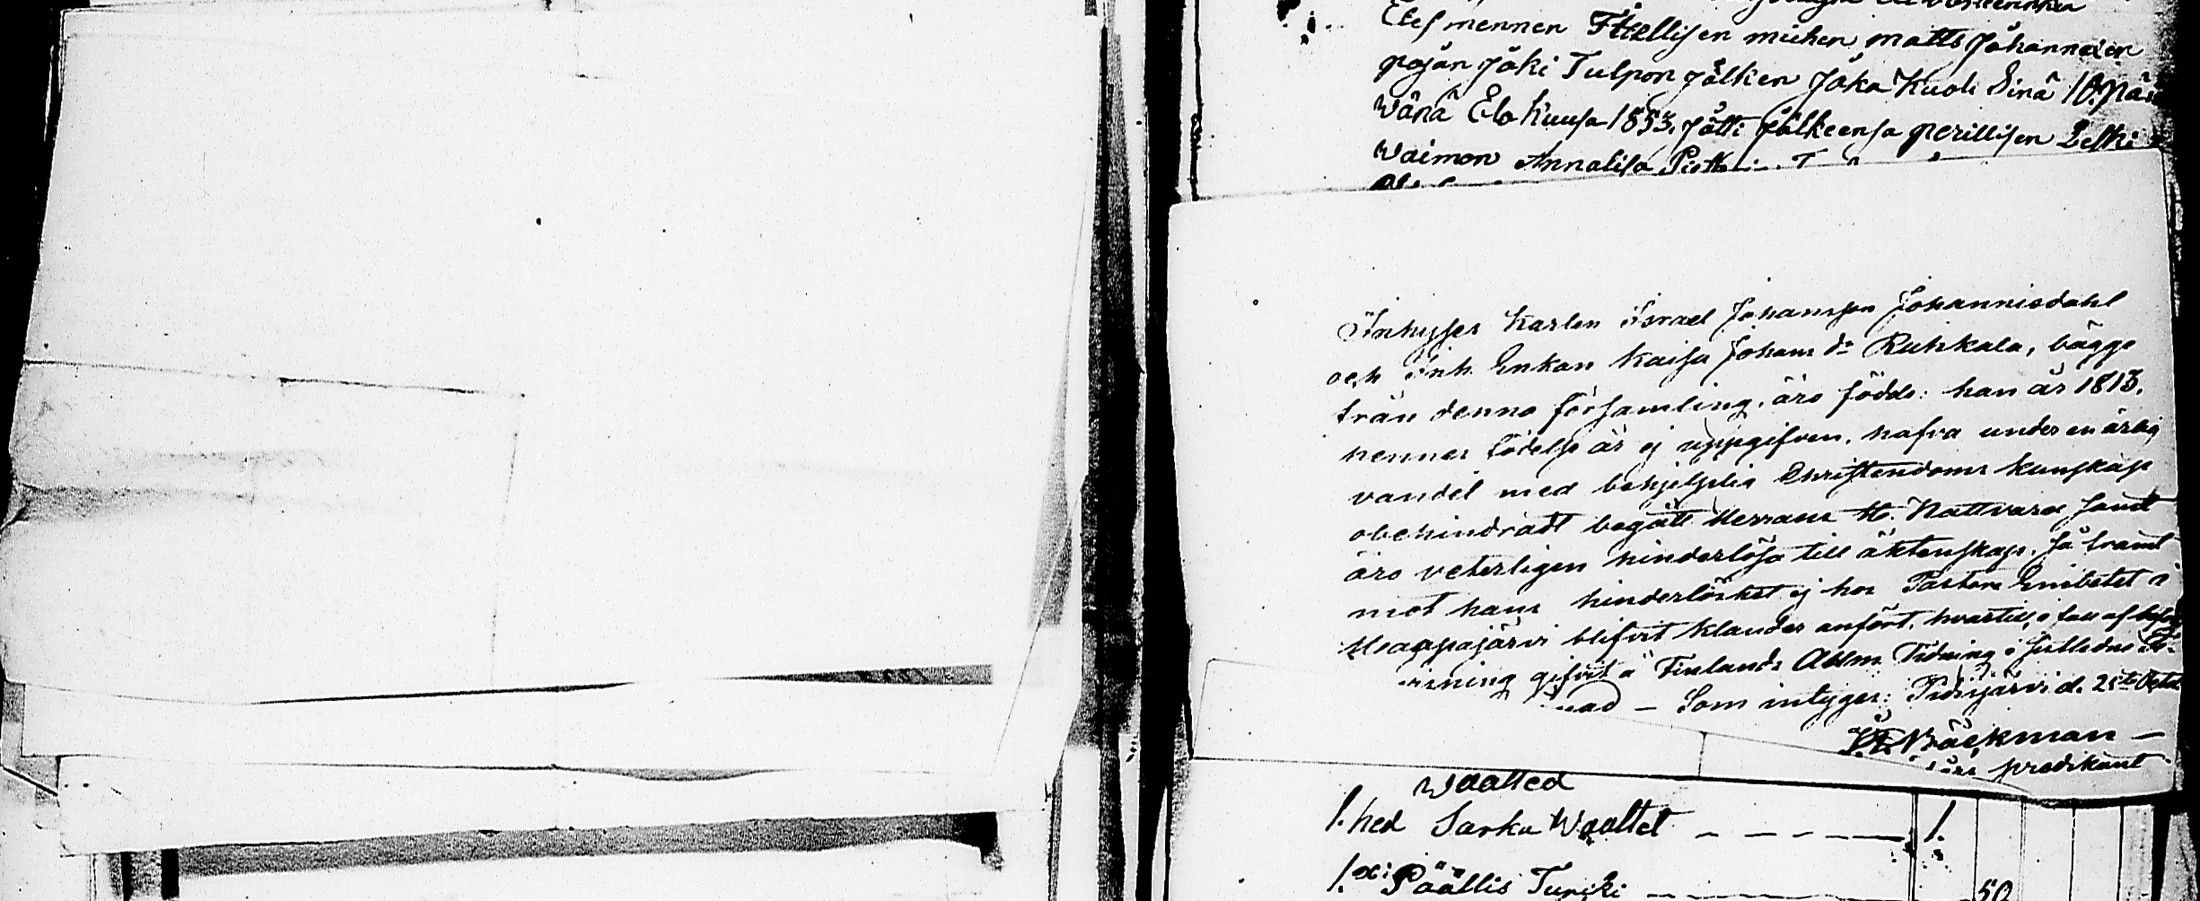 Elesmennen Itzellisen miehen, matts Johannexen
pojan Joki Tulpon jälken Joka Kuoli Sinä 10 päi
wänä Elo Kuusa 1853. jätti jälkeensä perillisen Leski
Waimon Annalisa
Inhyses Karlen Israel Johansson Johannisdahl
och Inh. Enkan Kaisa Johans dr Ruhkala, bägge
från denna församling, äro födde: han år 1813.
hennes födelse år ej uppgifven, hafva under en ärlig
vandel med behjelplig Christendoms kunskap
obehindradt begått Herrans H. Nattvard samt
äro veterligen hinderlösa till äktenskap, så framt
mot hans hinderlöshet ej hos Pastors Embetet i
Meappajärvi blifvit klander anfört, hvartill, i fall af
gifvit i Finlands Allm. Tidning i
— Som intygar: Pidisjärvi d. 25te Octob
Bäckman —
predikant
Waatted
1. hed Sarka Waattet — — — — 1.
1. Päällis Turcki — — — — 50